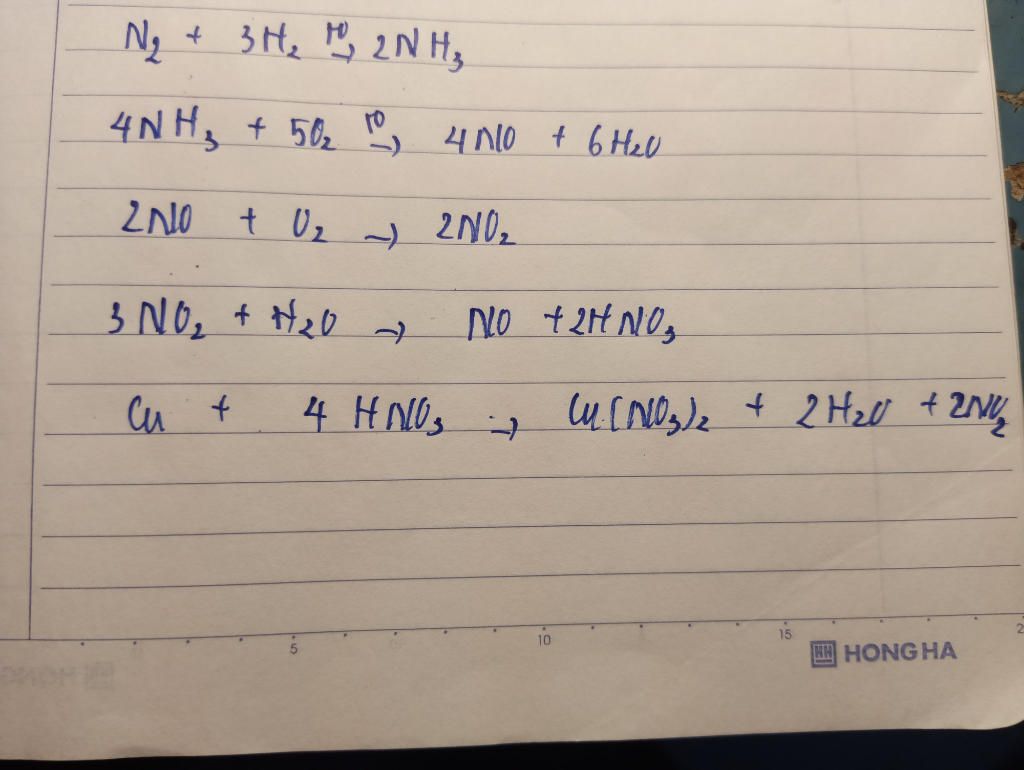 N₂ + 3H₂ t⁰→ 2NH₃
4NH₃ + 5O₂ t⁰→ 4NO + 6H₂O
2NO + O₂ → 2NO₂
3NO₂ + H₂O → NO + 2HNO₃
Cu + 4HNO₃ → Cu(NO₃)₂ + 2H₂O + 2NO₂
5 10 15 2
HONG HA